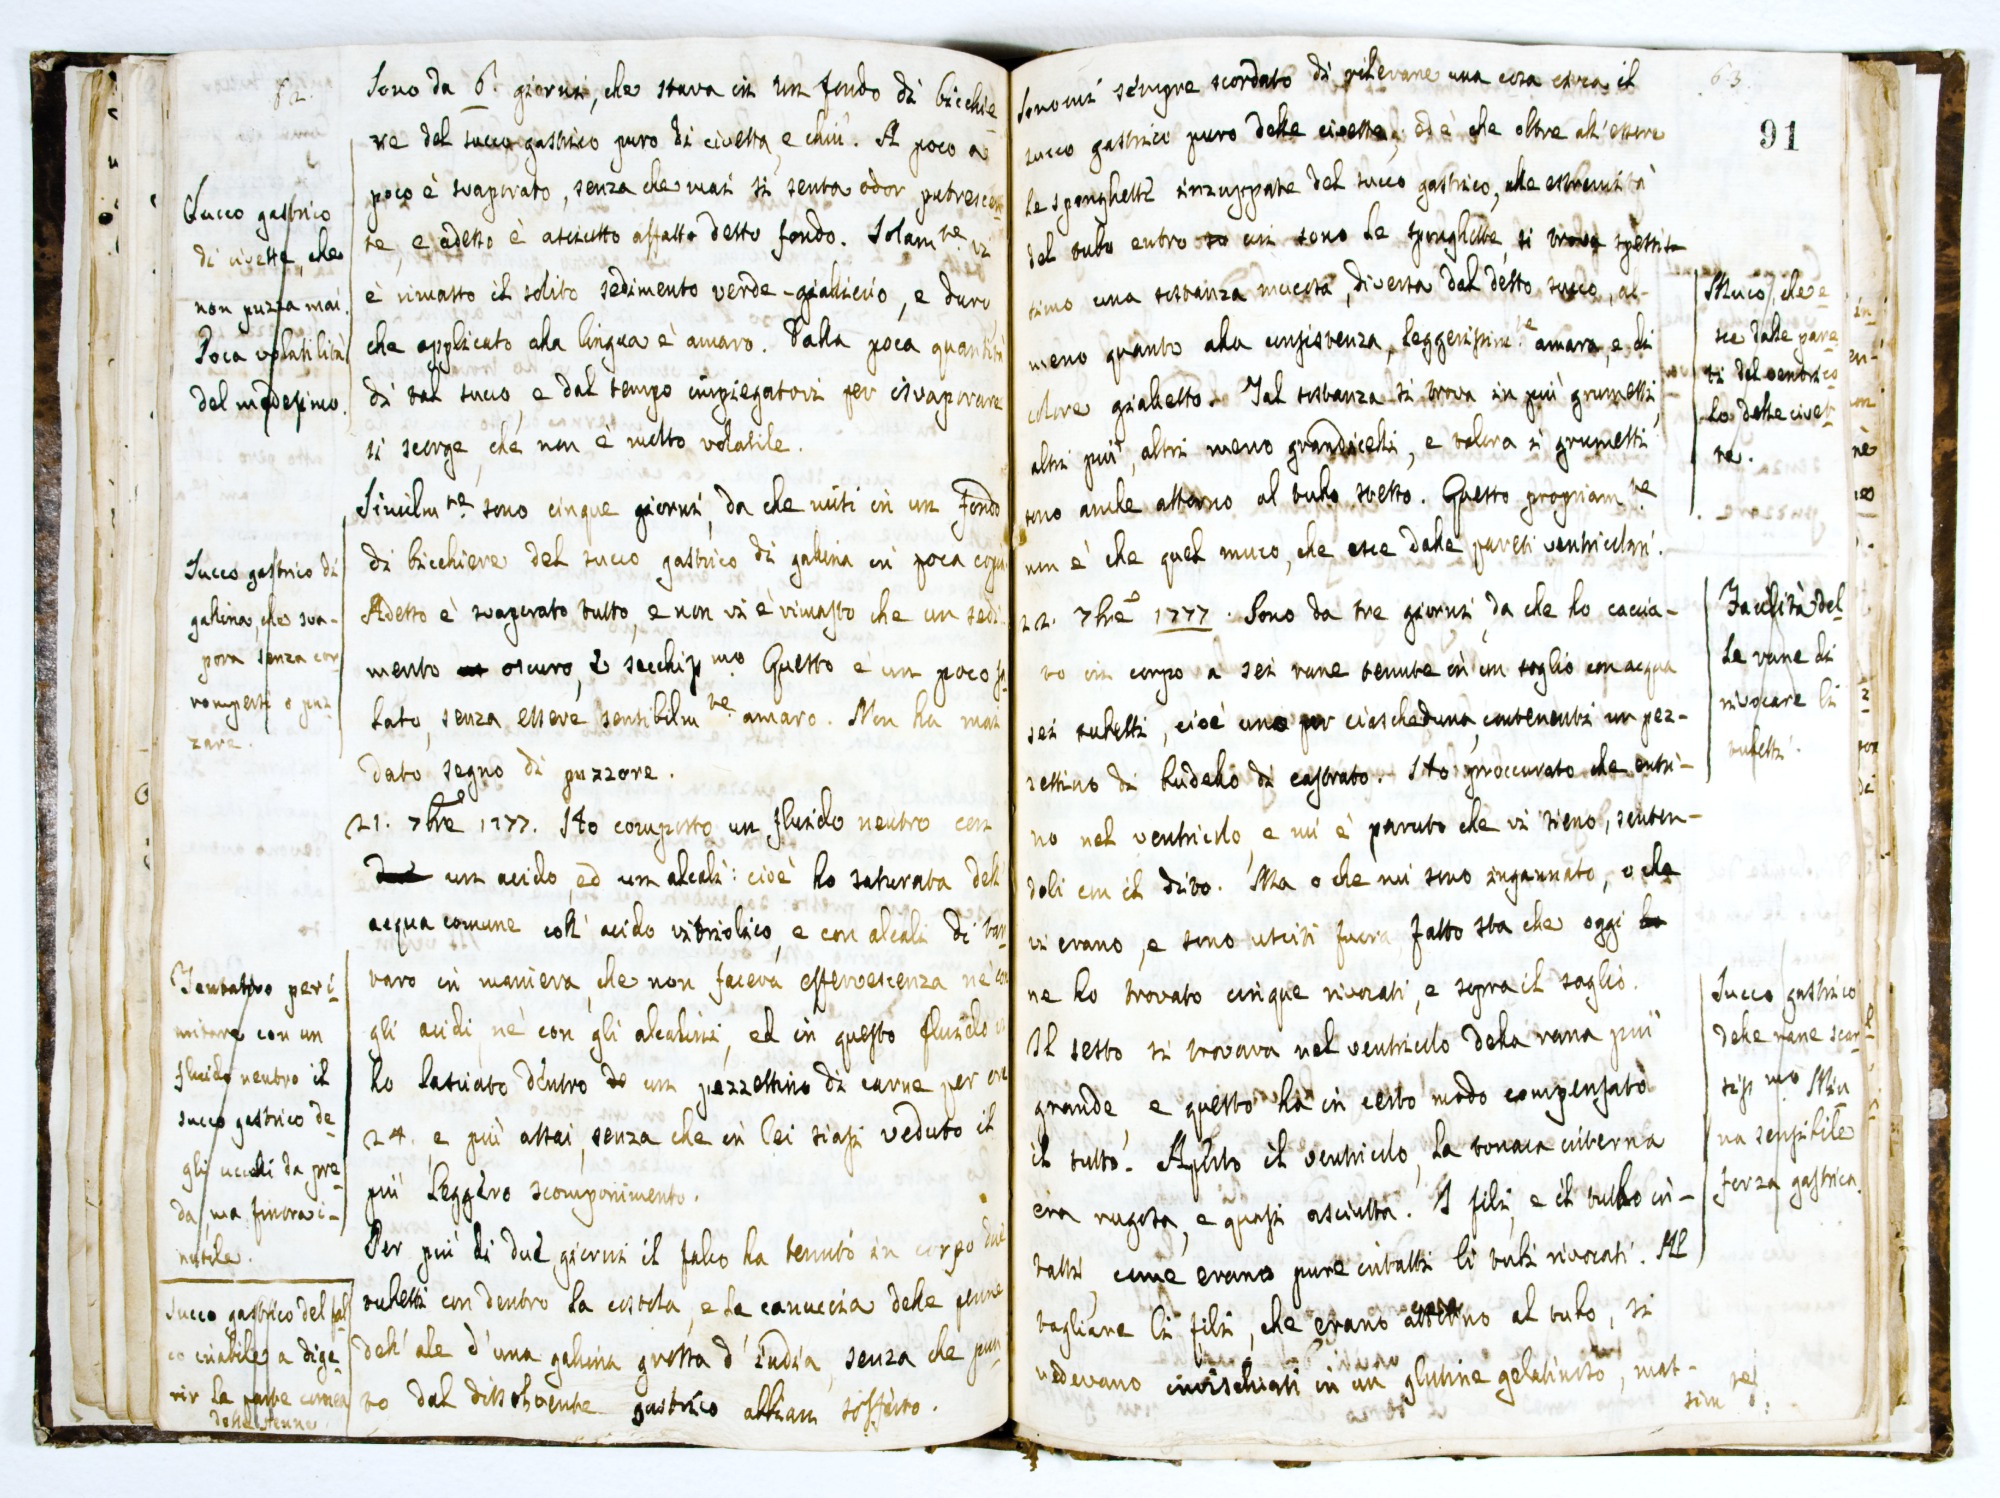 82.
Sono da 6. giorni, che stava in un fondo di bicchie
re del succo gastrico puro di civetta, e chiù. A poco a
poco è svaporato, senza che mai si senta odor putrescen
te, e adesso è asciutto affatto detto fondo. Solam.te vi
è rimasto il solito sedimento verde-gialliccio, e duro
che applicato alla lingua è amaro. Dalla poca quantità
di tal succo, e dal tempo impiegatovi per isvaporare
si scorge, che non è molto volatile.
Similm.te sono cinque giorni, da che misi in un fondo
di bicchiere del succo gastrico di gallina in poca copia
Adesso è svaporato tutto, e non vi è rimasto che un sedi
mento oscuro, e secchiss.mo Questo è un poco sa
lato, senza essere sensibilm.te amaro. Non ha mai
dato segno di puzzore.
21. 7bre 1777. Ho composto un fluido neutro con
un acido, ed un alcali: cioè ho saturata dell'
acqua comune coll' acido vitriolico, e con alcali di tar
taro in maniera, che non faceva effervescenza nè con
gli acidi, nè con gli alcalini, ed in questo fluido vi
ho lasciato dentro un pezzettino di carne per ore
24. e più assai, senza che in lei siasi veduto il
più leggero scomponimento.
Per più di due giorni il falco ha tenuto in corpo due
tubetti con dentro la costola, e le canuccia delle penne
dell' ale d' una gallina grossa d' india, senza che pun
to dal dissolvente gastrico abbian sofferto.
Succo gastrico
di civette, che
non puzza mai.
Poca volatilità
del medesimo.
Succo gastrico di
gallina, che sva-
pora senza cor
rompersi o puz
zare.
Tentativo per i
mitare con un
fluido neutro il
succo gastrico de
gli uccelli da pre
da, ma finora i-
nutile.
Succo gastrico del fal
co inabile a dige
rir la parte cornea
delle penne.
63.
91
Sonomi sempre scordato di rilevare una cosa circa il
succo gastrico puro delle civette, ed è che oltre all' essere
le spunghette inzuppate del succo gastrico, alle estremità
del tubo entro cui sono le spunghette, si trova spessis
simo una sostanza mucosa, diversa dal detto succo, al-
meno quanto alla consistenza, leggerissim.te amara, e di
colore gialletto. Tal sostanza si trova in più grumetti,
altri più, altri meno grandicelli, e talora i grumetti
sono anche attorno al tubo stesso. Questo propriam.te
non è che quel muco, che esce dalle pareti ventricolari.
22. 7bre 1777. Sono da tre giorni da che ho caccia-
to in corpo a sei rane tenute in un soglio con acqua
sei tubetti, cioè uno per ciascheduna, contenenti un pez-
zettino di budello di castrato. Ho proccurato che entri-
no nel ventricolo, e mi è paruto che vi sieno, senten-
doli con il dito. Ma o che mi sono ingannato, o che
vi erano, e sono usciti fuora, fatto sta che oggi
ne ho trovato cinque rivocati, e sopra il soglio.
Il sesto si trovava nel ventricolo della rana più
grande, e questo ha in certo modo compensato
il tutto. Aperto il ventricolo, la tonaca interna
era rugosa, e quasi asciutta. I fili, e il tubo in-
tatti, come erano pure intatti li tubi rivocati. Al
tagliare li fili, che erano attorno al tubo, si
vedevano invischiati in un glutine gelatinoso, mas-
sim.te
Muco, che e
sce dalle pare
ti del ventrico
lo delle civet
te.
Facilità del
le rane di
rivocare li
tubetti.
Succo gastrico
delle rane scar
siss.mo Niu
na sensibile
forza gastrica.